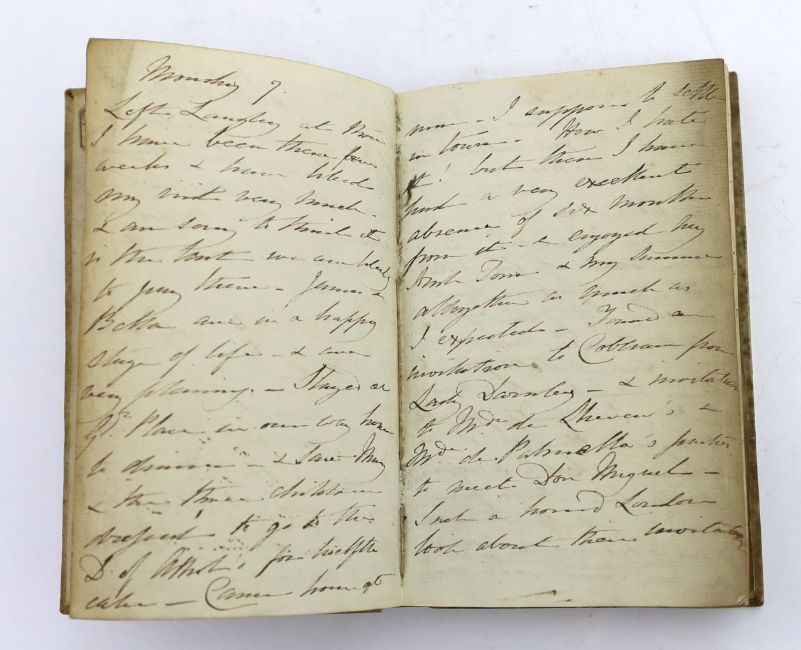 Monday 7.
Left Langley at three
I have been there four
weeks & have liked
my visit very much -
& am sorry to think it
is the last we are likely
to pay there - James &
Bella are in a happy
stage of life - & are
very pleasing - Stayed at
Gr. Place in our way home
to dinner - & saw May
& the three children
dressed to go to the
D. of Atholl's for twelfth
cake - Came home at
now - I suppose to settle
in town - How I hate
it! but then I have
had a very excellent
absence of six months
from it - & enjoyed my
Irish Tour & my Summer
altogether as much as
I expected - Found an
invitation to Cobham from
Lady Darnley - & invitations
to Mde de Lieven's &
Mde de Palmella's parties
to meet Don Miguel -
a horrid London
look about these invitations